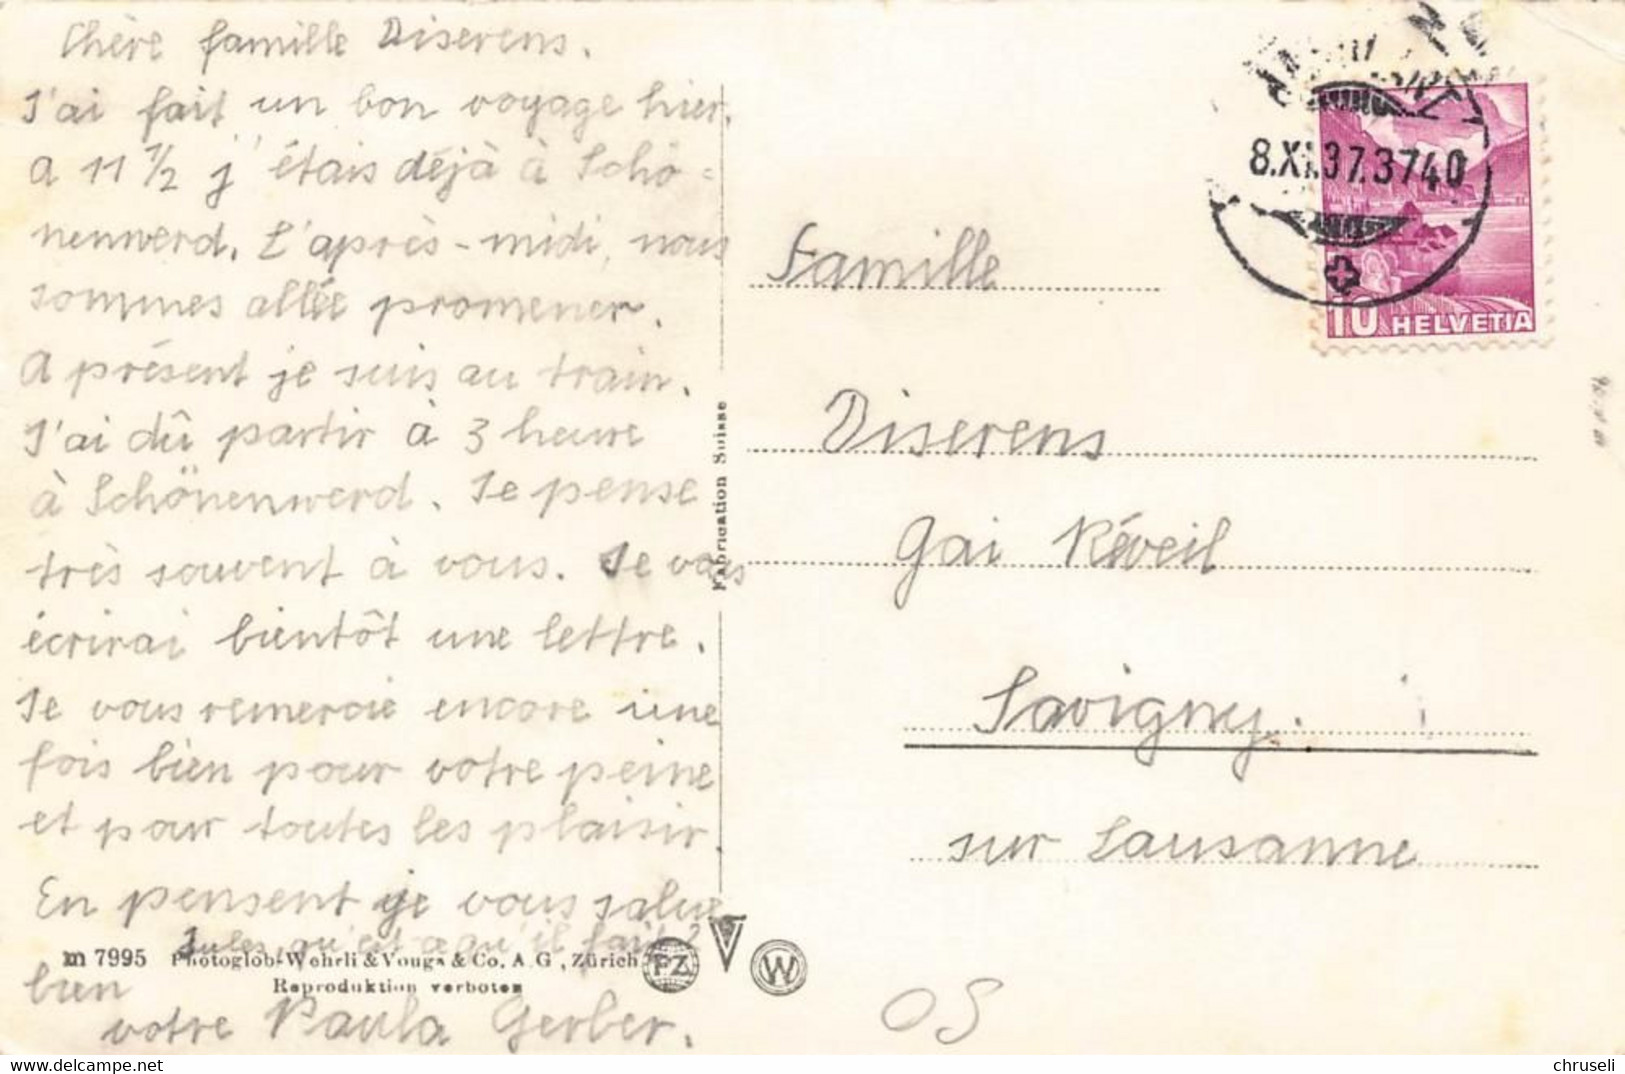 Chère famille Diserens.
J'ai fait un bon voyage hier,
a 11 1/2 j'étais déjà à Schö-
nenwerd. L'après-midi, nous
sommes allée promener.
A présent je suis au train.
J'ai dû partir à 3 heure
à Schönenwerd. Je pense
très souvent à vous. Je vous
écrirai bientôt une lettre.
Je vous remercie encore une
fois bien pour votre peine
et pour toutes les plaisir.
En pensent je vous salue
Jules, qu'est a qu'il fait?
bien
votre Paula Gerber.
m 7995 Photoglob-Wehrli & Vouga & Co. A.G., Zürich
Reproduktion verboten
PZ
V
W
Fabrication Suisse
8.XI.37.3740
10 HELVETIA
Famille
Diserens
Gai Réveil
Savigny.
sur Lausanne
OS
chruseli